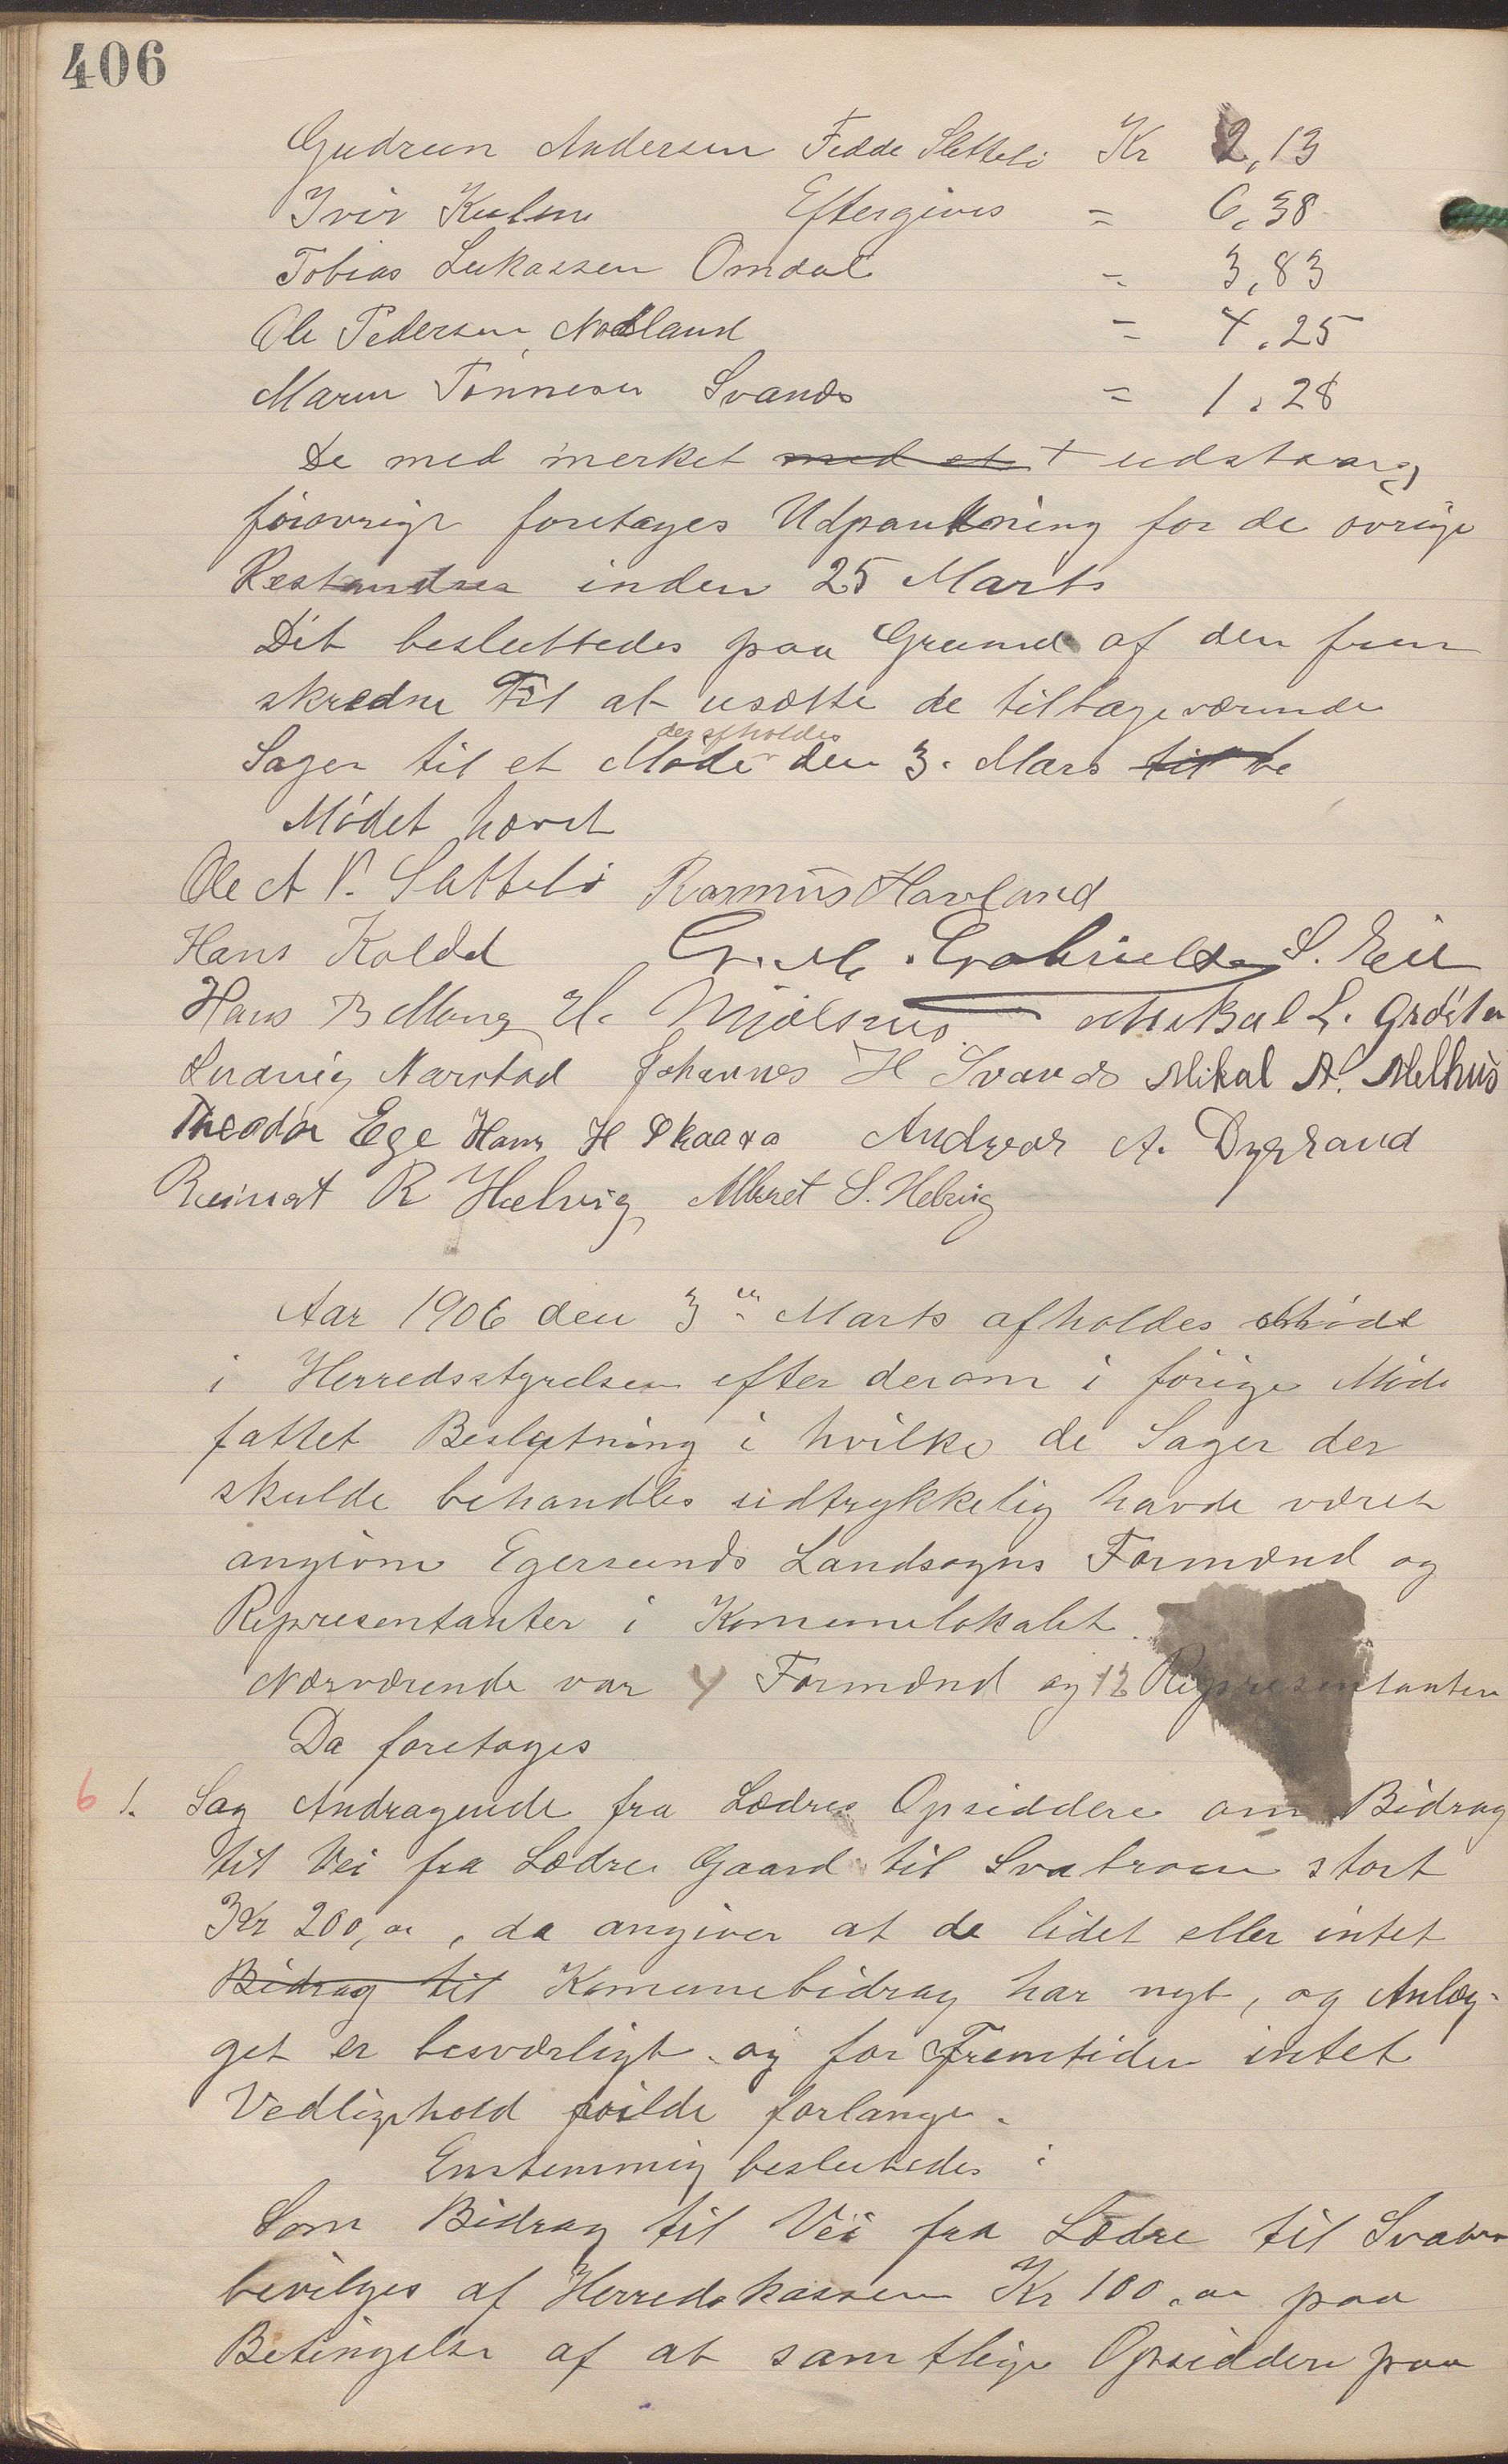 406
Gudrun Andersen Fedde Sletteli Kr 2,13
Iver Kulsen Eftergives = 6,38
Tobias Lukassen Omdal = 3,83
Ole Pedersen Nodland = 4,25
Maren Tønnesen Svands = 1,28
De med merket med et + udstaar og
forøvrigt foretages Udpantning for de øvrige
Restandser inden 25 Marts
Det besluttedes paa Grund af den frem
skredne Tid at udsætte de tilbageværende
der afholdes
Sager til et Møde den 3. Mars til be
Mødet hævet
Ole A V. Slettebø Rasmus Havsland
Hans Koldal G. M. Gabrielsen S. Eie
Hans B Mong H. Mjølsnes Mikal L. Grøsten
Ludvig Narstad Johannes H Svands Mikal A. Melhus
Theodor Ege Hans H Skaara Andreas A. Dygland
Reinert R Helvig Albret S. Helvig
Aar 1906 den 3die Marts afholdes Møde
i Herredsstyrelsen efter derom i forige Møde
fattet Beslutning i hvilke de Sager der
skulde behandles udtrykkelig havde været
angivne Egersunds Landsogns Formænd og
Representanter i Komunelokalet.
Nærværende var 4 Formænd og 12 Representanter
Da foretages
6 1. Sag Andragende fra Lædre Opsiddere om Bidrag
til Vei fra Lædre Gaard til Svabroen stort
Kr 200,00, da angiver at de lidet eller intet
Bidrag til Komunebidrag har nyt, og Anlæg-
get er besværligt og for Fremtiden intet
Vedligehold vilde forlange.
Enstemmig besluttedes:
Som Bidrag til Vei fra Lædre til Svabro
bevilges af Herredskassen Kr 100,00 paa
Betingelse af at samtlige Opsiddere paa